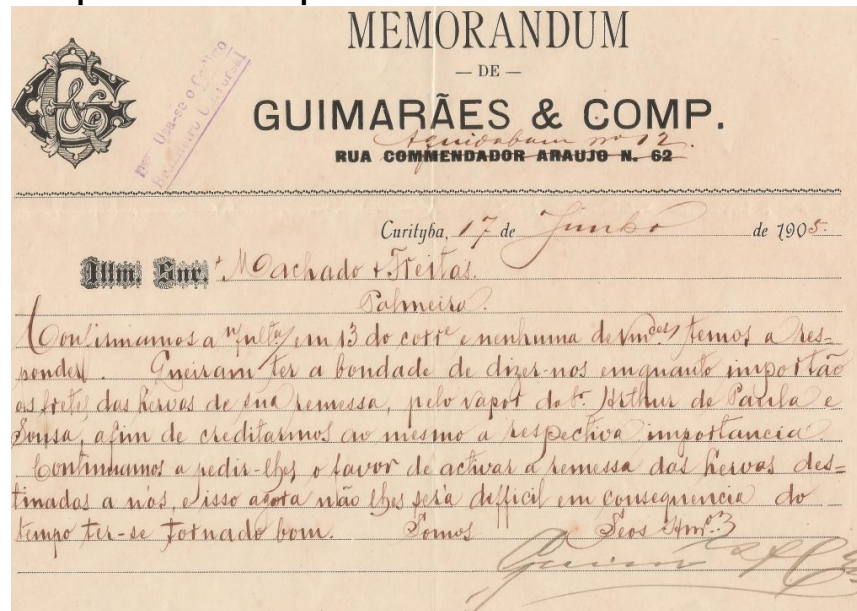 MEMORANDUM
— DE —
GUIMARÃES & COMP.
Aquidabam nº 12.
RUA COMMENDADOR ARAUJO N. 62
Usa-se o Codigo
Brazileiro Universal
Curityba, 17 de Junho de 1905.
Illm. Snr.s Machado & Freitas.
Palmeira.
Confirmamos a n/ ulta/ em 13 do corre e nenhuma de Vmces/ temos a res=
ponder. Queiram ter a bondade de dizer-nos emquanto importão
os fretes das hervas de sua remessa, pelo vapor do Sr. Arthur de Paula e
Sousa, afim de creditarmos ao mesmo a respectiva importancia.
Continuamos a pedir-lhes o favor de activar a remessa das hervas des=
tinadas a nós, e isso agora não lhes será difficil em consequencia do
tempo ter-se tornado bom. Somos Seos